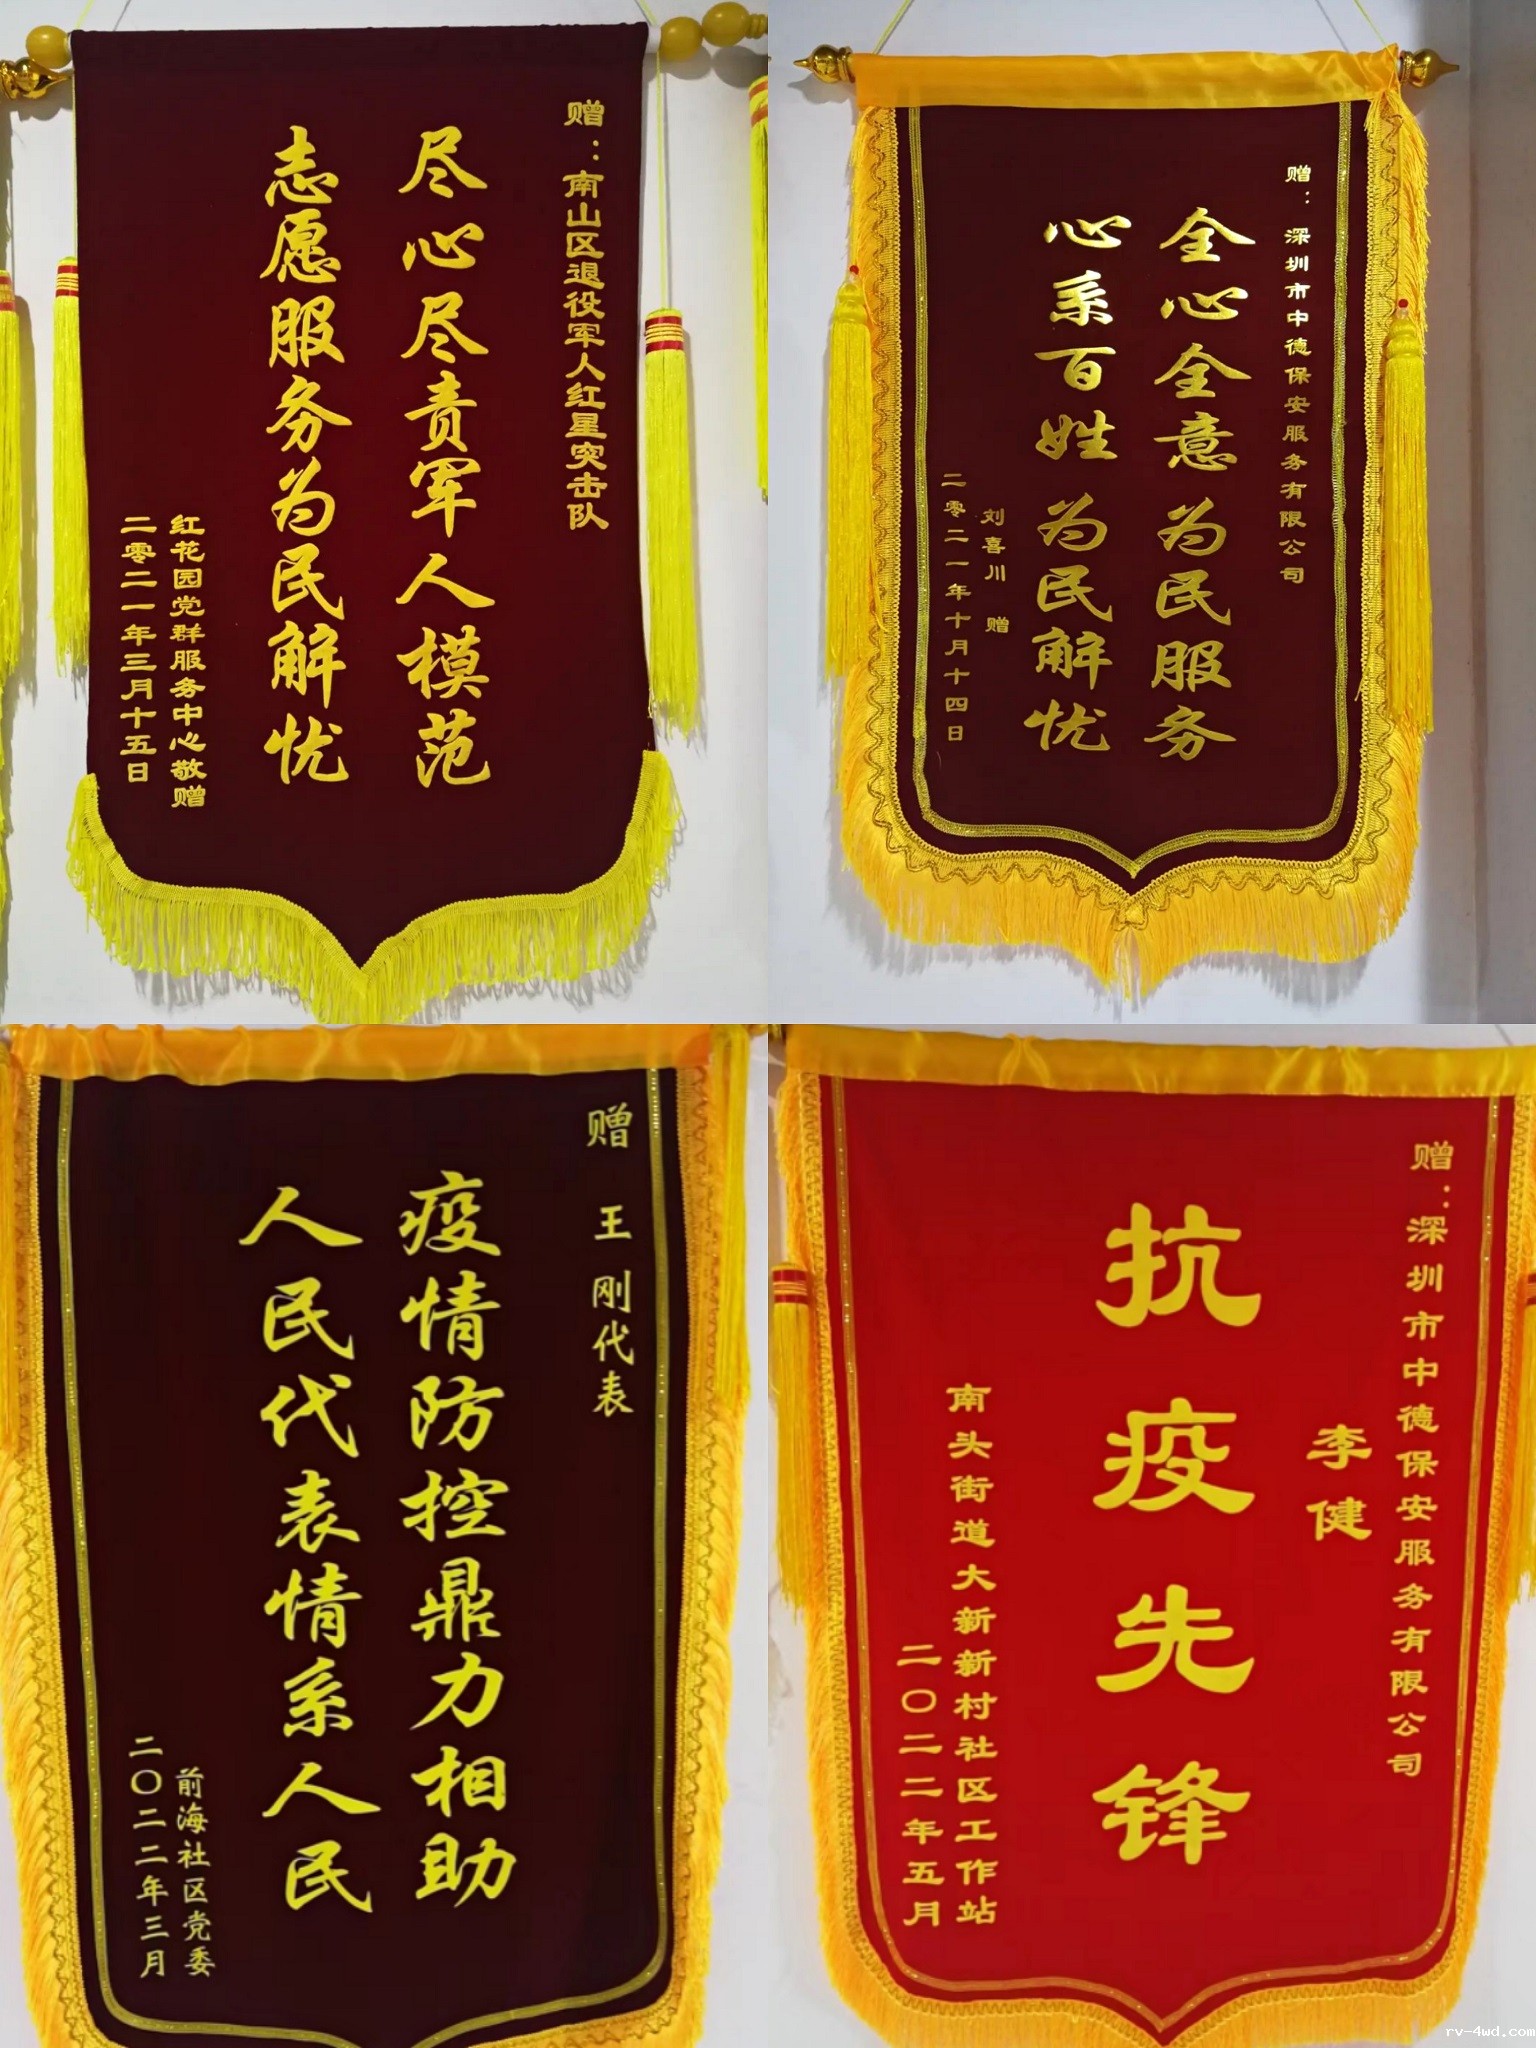 赠：南山区退役军人红星突击队
尽心尽责军人模范
志愿服务为民解忧
红花园党群服务中心敬赠
二零二一年三月十五日
赠：深圳市中德保安服务有限公司
全心全意为民服务
心系百姓为民解忧
刘喜川 赠
二零二一年十月十四日
赠 王刚代表
疫情防控鼎力相助
人民代表情系人民
前海社区党委
二〇二二年三月
赠：深圳市中德保安服务有限公司
李健
抗疫先锋
南头街道大新新村社区工作站
二〇二二年五月
rv-4wd.com